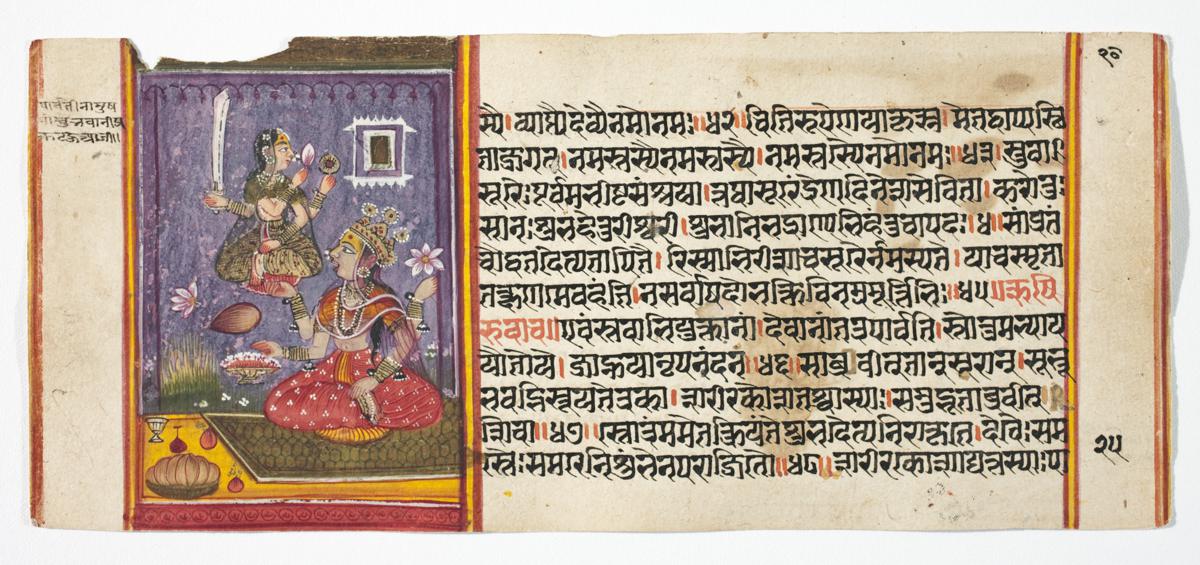 पार्वती
२०
स्यै।व्याप्त्यैदेव्यैनमोनमः॥४२॥चितिरूपेणयाकृत्स्न।मेतद्व्याप्यस्थि
ताजगत।नमस्तस्यैनमस्तस्यै।नमस्तस्यैनमोनमः॥४३॥स्तुता
सूरैःपूर्वमभीष्टसंश्रया।त्तथासूरेंद्रेणदिनेशुसेविता।करोतु
सानःशुभहेतुरीश्वरी।शुभानिभद्राण्यभिहंतुचापदः॥४॥सांप्रत
चोद्धतदैत्यतापितै।रस्माभिरीशाचसूरैर्नमस्यते।याचस्मृता
तत्क्षणमेवहंति।नसर्वापदोभक्तिविनम्रमूर्त्तिभिः॥४५॥ऋषि
रुवाच॥एवंस्तवाभियुक्तानां।देवानांतत्रपार्वति।स्नातुमभ्याय
यौतोये।जाह्नव्यानृपनंदन॥४६॥साब्रवीत्तान्सूरान्।सूभ्रू
भवद्भिस्तूयतेत्रका।शरीरकोशतश्चास्याः।समुद्भूताब्रवीत
छिवा॥४७॥स्तोत्रंममैतत्क्रियते।शुंभदैत्यनिराकृतै।देवैःसम
स्तैःसमरेनिशुंभेनपराजितै॥४८॥शरीरकोशाद्यत्तस्याःपा
२५